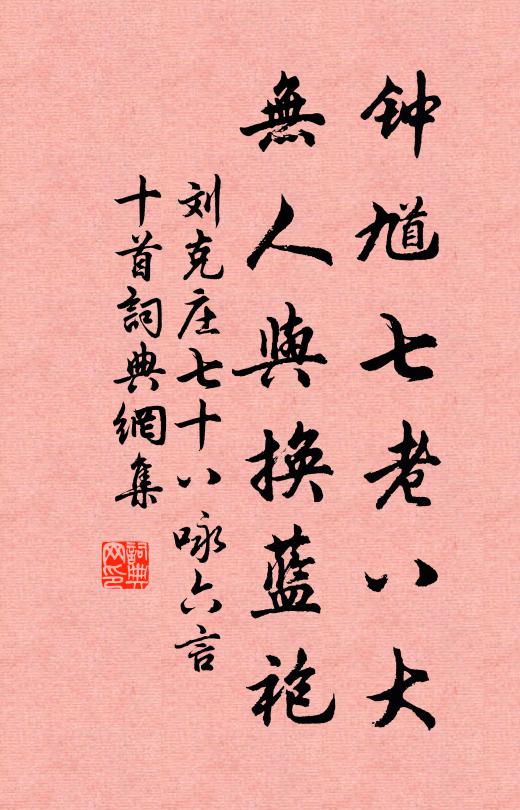 钟馗七老八大
無人與换藍袍
刘克庄七十八咏六言
十首詞典網集
詞典
网印